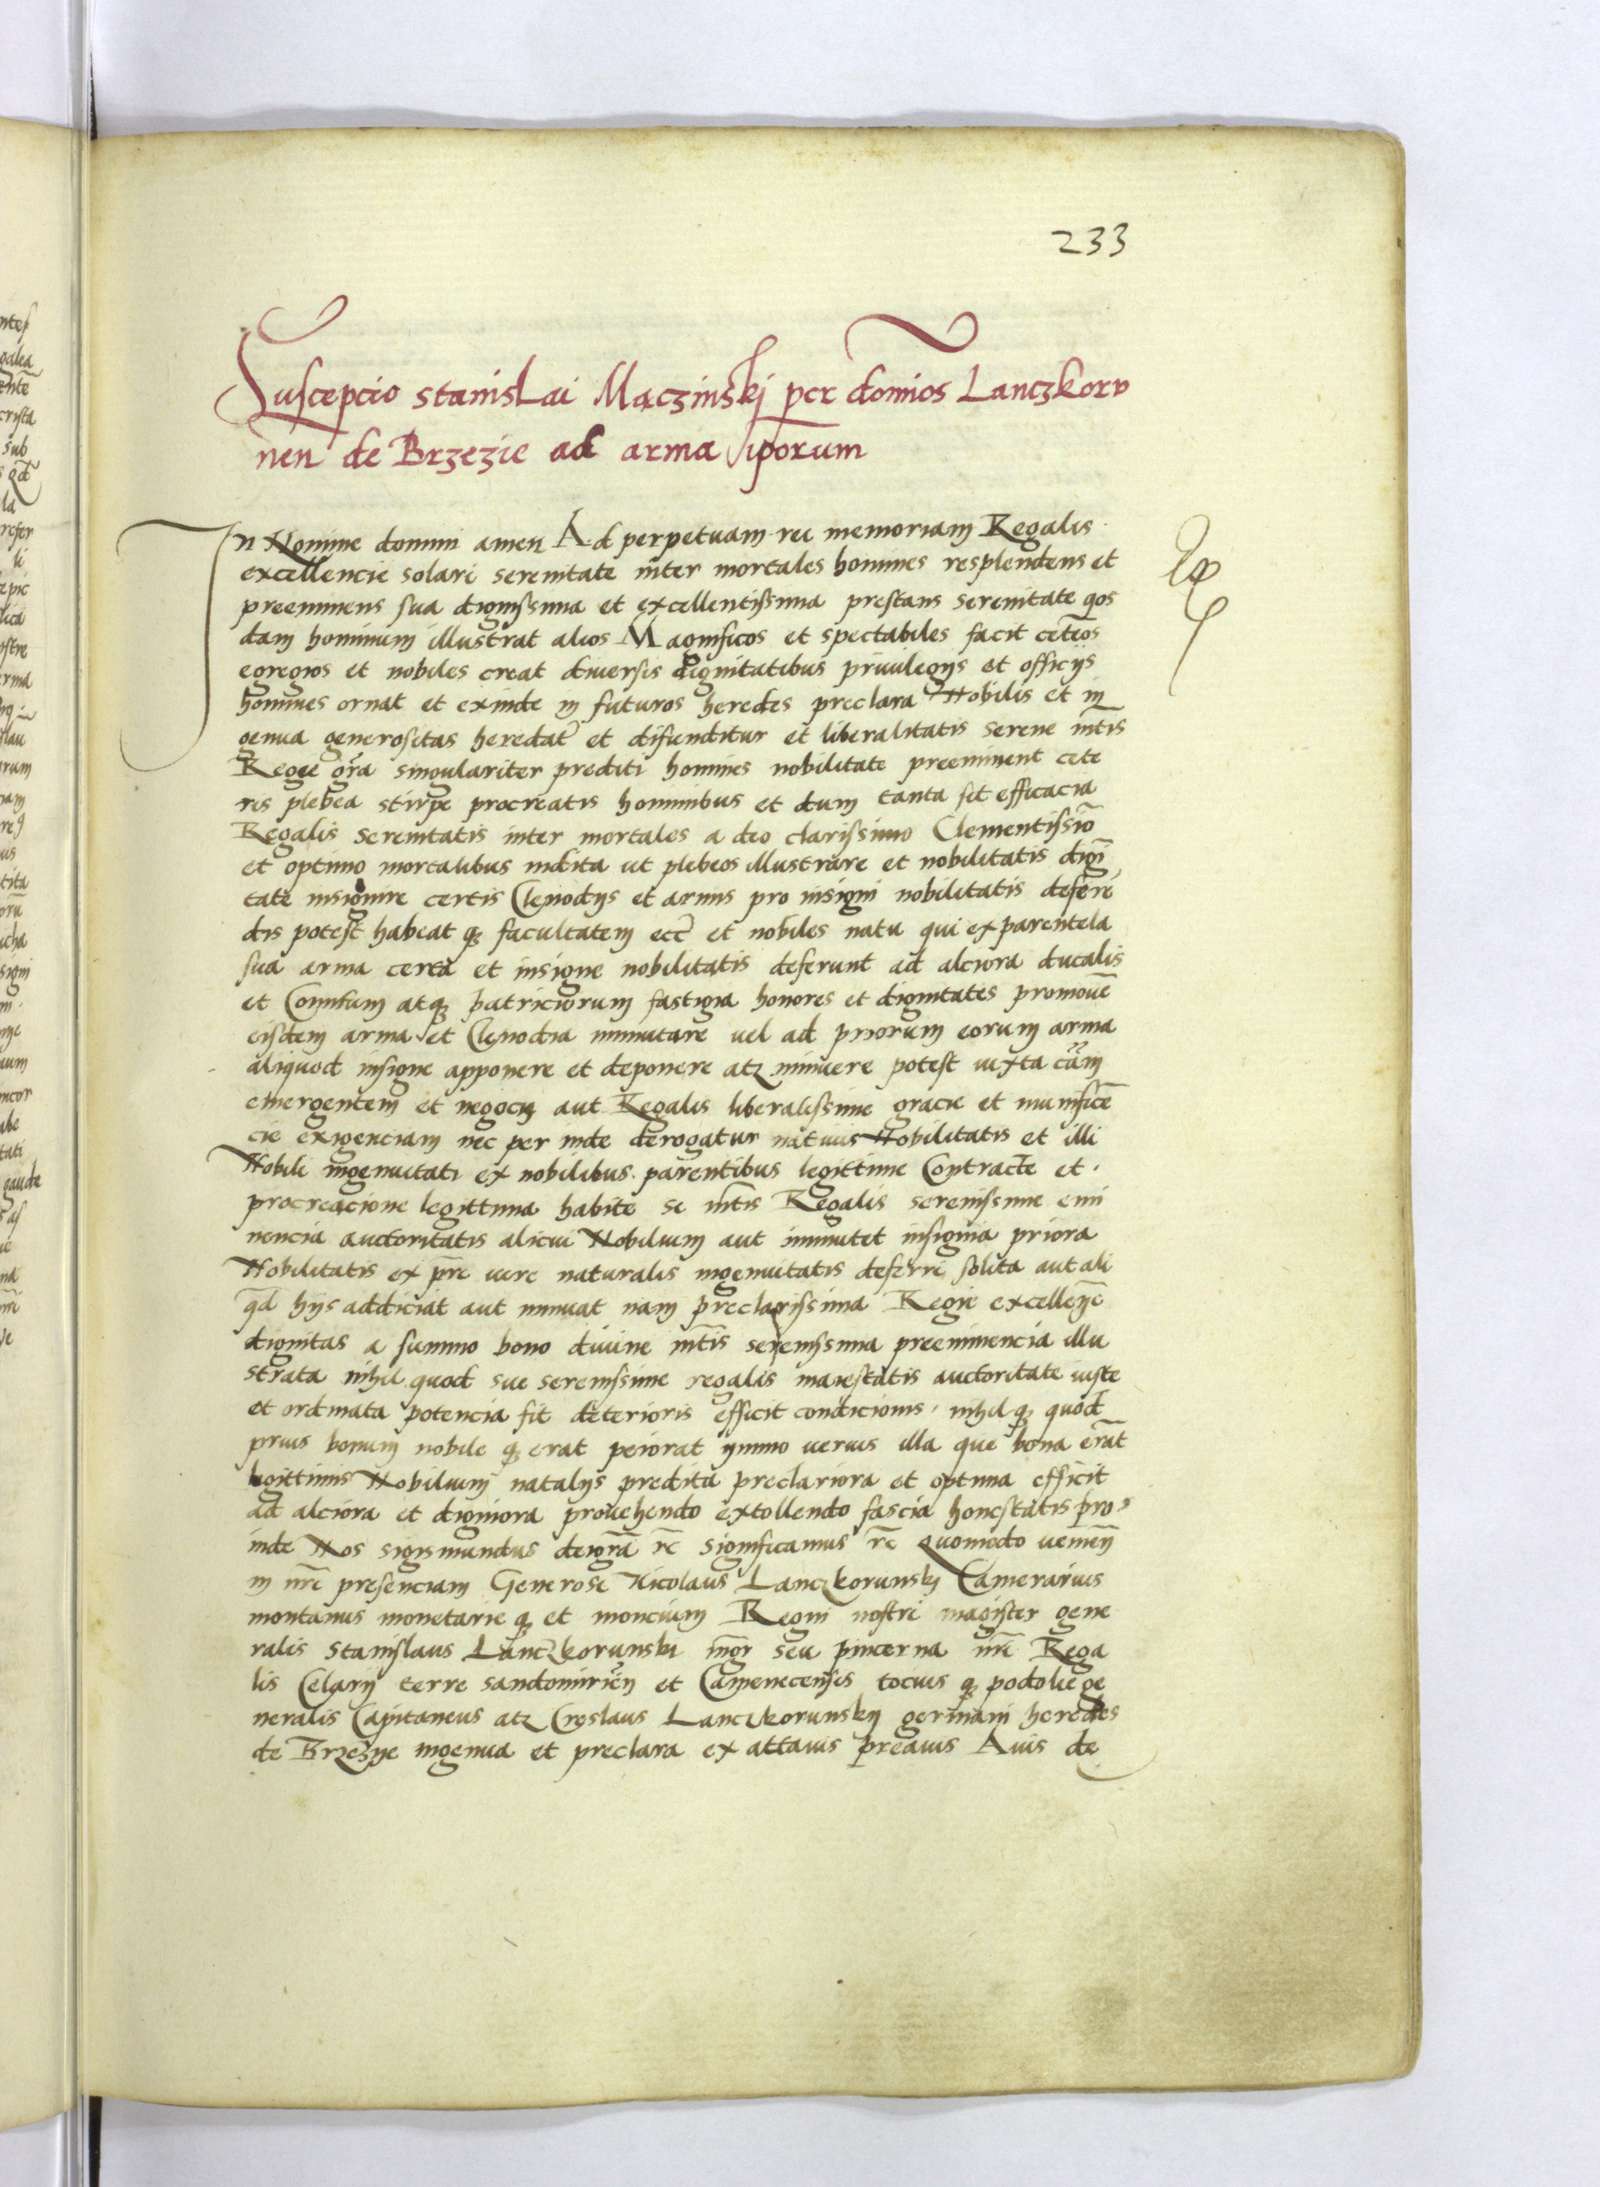 233
Suscepcio stanislai Mączinskj per domios Lanczkoro
nen de Brzezie ad arma iporum
In Nomine domini amen Ad perpetuam rei memoriam Regalis
excellencie solari serenitate inter mortales homines resplendens et
preeminens sua dignissima et excellentissima prestans serenitate qos
dam hominum illustrat alios Magnificos et spectabiles facit ceteos
egregios et nobiles creat diuersis dignitatibus priuilegijs et officijs
homines ornat et exinde in futuros heredes preclara Nobilis et in
genua generositas heredatr et difunditur et liberalitatis serene mtis
Regie gra singulariter prediti homines nobilitate preeminent cete
ris plebea stirpe procreatis hominibus et dum tanta sit efficacia
Regalis serenitatis inter mortales a deo clarissimo Clementissio
et optimo mortalibus indita ut plebeos illustrare et nobilitatis digi
tate insignire certis Clenodijs et armis pro insigni nobilitatis defere
dis potest habeat q3 facultatem etc et nobiles natu qui ex parentela
sua arma certa et insigne nobilitatis deferunt ad alciora ducalis
et Comitum atq3 patriciorum fastigia honores et dignitates promoue
eisdem arma et Clenodia immutare uel ad priorum eorum arma
aliquod insigne apponere et deponere atz minuere potest iuxta cam
emergentem et negocij aut Regalis liberalissime gracie et munifice
cie exigenciam nec per inde derogatur natiuis Nobilitatis et illi
Nobili ingenuitati ex nobilibus parentibus legittime Contracte et
procreacione legittima habite si mtis Regalis serenissime emi
nencia auctoritatis alicui Nobilium aut immutet insignia priora
Nobilitatis ex pre iure naturalis ingenuitatis deferri solita aut ali
qd hijs addiciat aut minuat nam preclarissima Regie excellencie
dignitas a summo bono diuine mtis serenissima preeminencia illu
strata nihil quod sue serenissime regalis maiestatis auctoritate iuste
et ordinata potencia fit deterioris efficit condicionis nihil q3 quod
prius bonum nobile q3 erat peiorat ymmo uerius illa que bona erat
legittimis Nobilium natalijs predita preclariora et optima efficit
ad alciora et digniora prouehendo extollendo fascia honestatis pro
inde Nos sigismundus dei gra rc significamus rc Quomodo uenien
in nre presenciam Generosi Nicolaus Lanczkorunskj Camerarius
montanus monetarie q3 et moncium Regni nostri magister gene
ralis Stanislaus Lanczkorunski mgr seu pincerna nre Rega
lis Celarij terre sandomirien et Camenecensis tocius q3 podolie ge
neralis Capitaneus atz Creslaus Lanczkorunskij germani heredes
de Brzezye ingenua et preclara ex attauis preauis Auis de